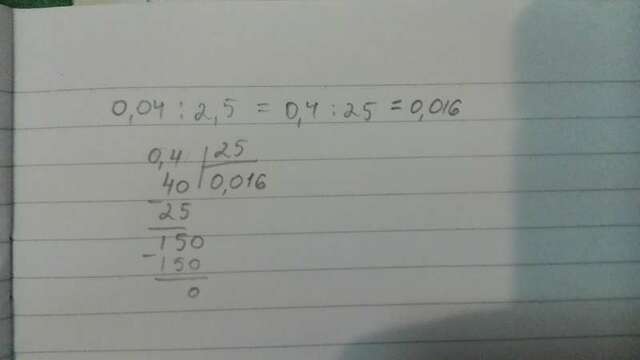 0,04 : 2,5 = 0,4 : 25 = 0,016
0,4 | 25
40 | 0,016
- 25
150
- 150
0